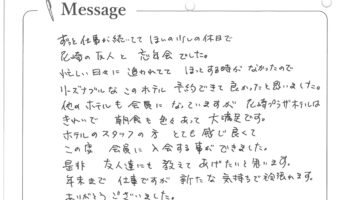 Message
ずっと仕事が続いてて ほんの少しの休日で
尼崎の友人と 忘年会でした。
忙しい日々に 追われてて ほっとする時が なかったので
リーズナブルな このホテル 予約できて 良かったと思いました。
他のホテルも 会員に なっていますが 尼崎プラザホテルは
きれいで 朝食も 色々あって 大満足です。
ホテルのスタッフの方 とても 感じ 良くて
この度 会員に 入会する事が できました。
是非 友人達にも 教えて あげたいと思います。
年末まで 仕事ですが 新たな 気持ちで 頑張れます。
ありがとうございました。